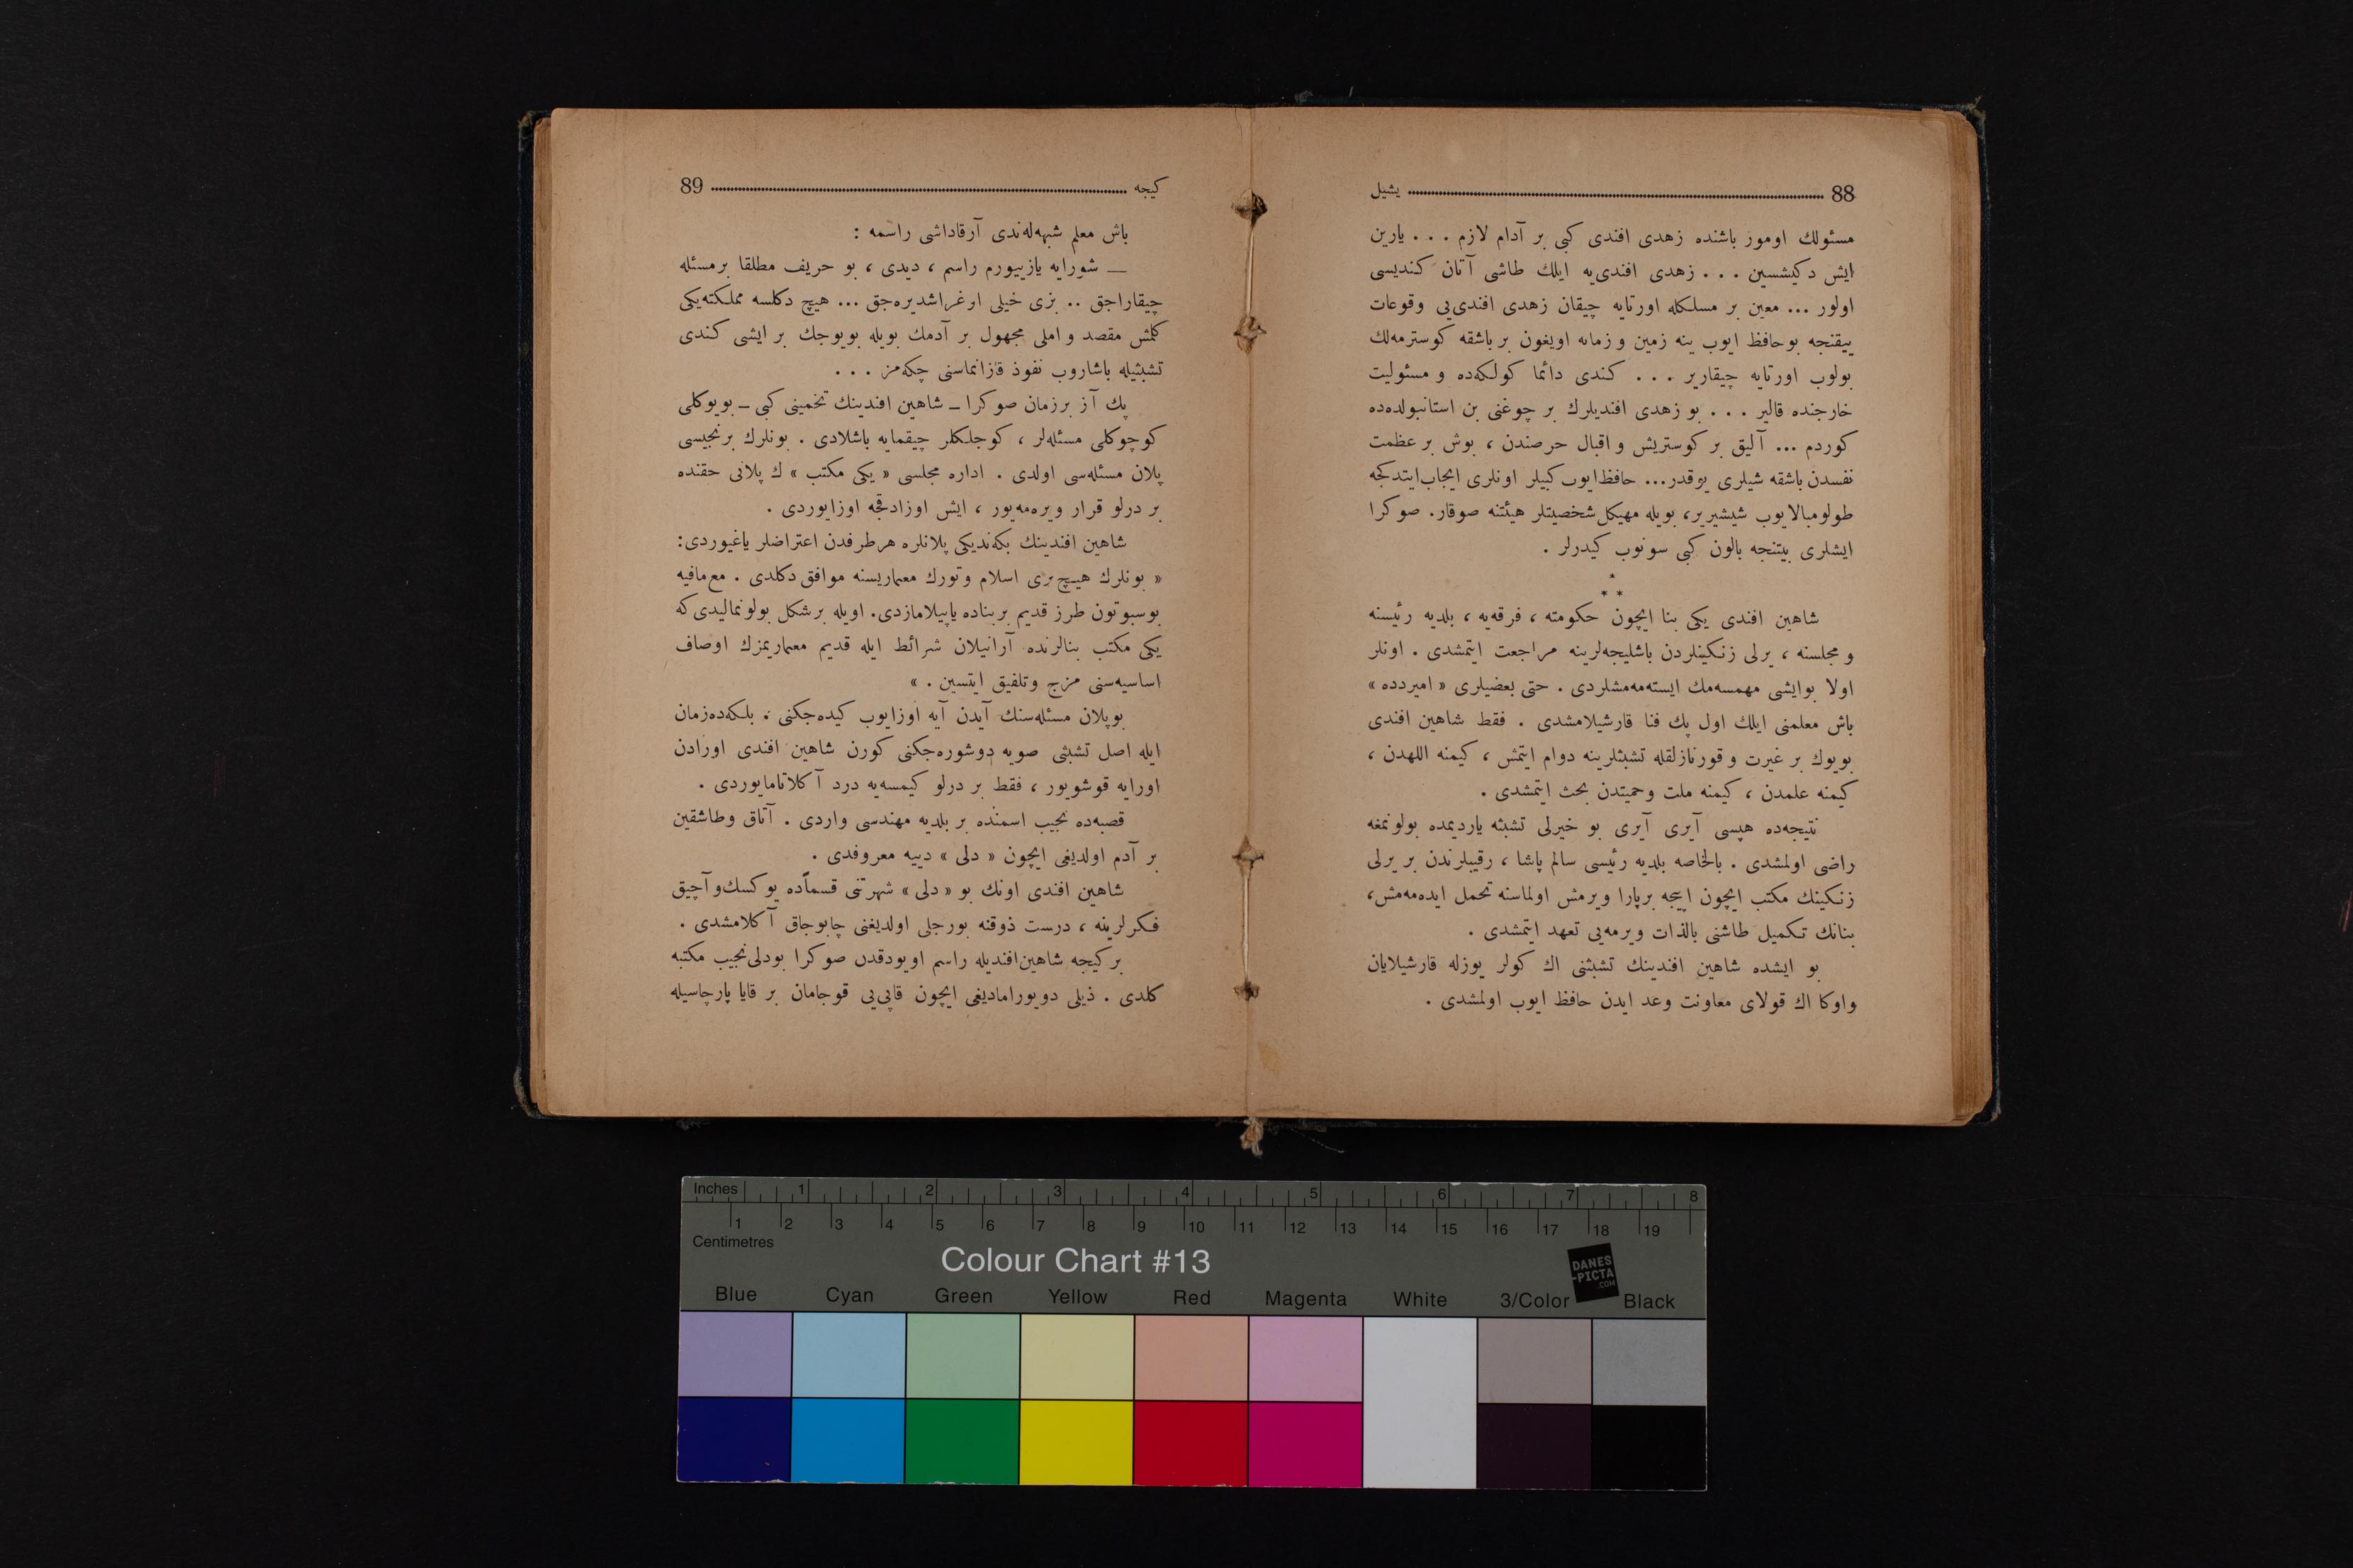 88 یشیل
مسئولك اوموز باشنده زهدی افندی كبی بر آدام لازم . . . یارین
ایش دكیشسین . . . زهدی افندی‌یه ایلك طاشی آتان كندیسی
اولور ... معین بر مسلكله اورتایه چیقان زهدی افندی‌یی وقوعات
ییقنجه بوحافظ ایوب ینه زمین و زمانه اویغون بر باشقه كوسترمه‌لك
بولوب اورتایه چیقاریر . . . كندی دائما كولكه‌ده و مسئولیت
خارجنده قالیر . . . بو زهدی افندیلرك بر چوغنی بن استانبولده‌ده
كوردم ... آلیق بر كوستریش و اقبال حرصندن ، بوش بر عظمت
نفسدن باشقه شیلری یوقدر... حافظ ایوب كبیلر اونلری ایجاب ایتدكجه
طولومبالایوب شیشیریر، بویله مهیكل شخصیتلر هیئتنه صوقار. صوكرا
ایشلری بیتنجه بالون كبی سونوب كیدرلر .
*
* *
شاهین افندی یكی بنا ایچون حكومته ، فرقه‌یه ، بلدیه رئیسنه
و مجلسنه ، یرلی زنكینلردن باشلیجه‌لرینه مراجعت ایتمشدی . اونلر
اولا بوایشی مهمسه‌مك ایسته‌مه‌مشلردی . حتی بعضیلری « امیردده »
باش معلمنی ایلك اول پك فنا قارشیلامشدی . فقط شاهین افندی
بویوك بر غیرت و قورنازلقله تشبثلرینه دوام ایتمش ، كیمنه اللهدن ،
كیمنه علمدن ، كیمنه ملت وحمیتدن بحث ایتمشدی .
نتیجه‌ده هپسی آیری آیری بو خیرلی تشبثه یاردیمده بولونمغه
راضی اولمشدی . بالخاصه بلدیه رئیسی سالم پاشا ، رقیبلرندن بر یرلی
زنكینك مكتب ایچون اییجه برپارا ویرمش اولماسنه تحمل ایده‌مه‌مش،
بنانك تكمیل طاشنی بالذات ویرمه‌یی تعهد ایتمشدی .
بو ایشده شاهین افندینك تشبثنی اك كولر یوزله قارشیلایان
واوكا اك قولای معاونت وعد ایدن حافظ ایوب اولمشدی .
كیجه 89
باش معلم شبهه‌له‌ندی آرقاداشی راسمه :
— شورایه یازییورم راسم ، دیدی ، بو حریف مطلقا برمسئله
چیقاراجق .. بزی خیلی اوغراشدیره‌جق ... هیچ دكلسه مملكته یكی
كلمش مقصد و املی مجهول بر آدمك بویله بویوجك بر ایشی كندی
تشبثیله باشاروب نفوذ قازانماسنی چكه‌مز . . .
پك آز برزمان صوكرا — شاهین افندینك تخمینی كبی — بویوكلی
كوچوكلی مسئله‌لر ، كوجلكلر چیقمایه باشلادی . بونلرك برنجیسی
پلان مسئله‌سی اولدی . اداره مجلسی « یكی مكتب » ك پلانی حقنده
بر درلو قرار ویره‌مه‌یور ، ایش اوزادقجه اوزایوردی .
شاهین افندینك بكه‌ندیكی پلانلره هرطرفدن اعتراضلر یاغیوردی:
« بونلرك هیچ بری اسلام وتورك معماریسنه موافق دكلدی . مع‌مافیه
بوسبوتون طرز قدیم بربناده یاپیلامازدی. اویله برشكل بولونمالیدی كه
یكی مكتب بنالرنده آرانیلان شرائط ایله قدیم معماریمزك اوصاف
اساسیه‌سنی مزج وتلفیق ایتسین . »
بوپلان مسئله‌سنك آیدن آیه اوزایوب كیده‌جكنی ، بلكه‌ده‌زمان
ایله اصل تشبثی صویه دوشوره‌جكنی كورن شاهین افندی اورادن
اورایه قوشویور ، فقط بر درلو كیمسه‌یه درد آكلاتامایوردی .
قصبه‌ده نجیب اسمنده بر بلدیه مهندسی واردی . آتاق وطاشقین
بر آدم اولدیغی ایچون « دلی » دییه معروفدی .
شاهین افندی اونك بو « دلی » شهرتنی قسماًده یوكسك‌وآچیق
فكرلرینه ، درست ذوقنه بورجلی اولدیغنی چابوجاق آكلامشدی .
بركیجه شاهین‌افندیله راسم اویودقدن صوكرا بودلی‌نجیب مكتبه
كلدی . ذیلی دویورامادیغی ایچون قاپی‌یی قوجامان بر قایا پارچاسیله
Inches 1 2 3 4 5 6 7 8
1 2 3 4 5 6 7 8 9 10 11 12 13 14 15 16 17 18 19
Centimetres
Colour Chart #13
DANES
-PICTA
.COM
Blue Cyan Green Yellow Red Magenta White 3/Color Black